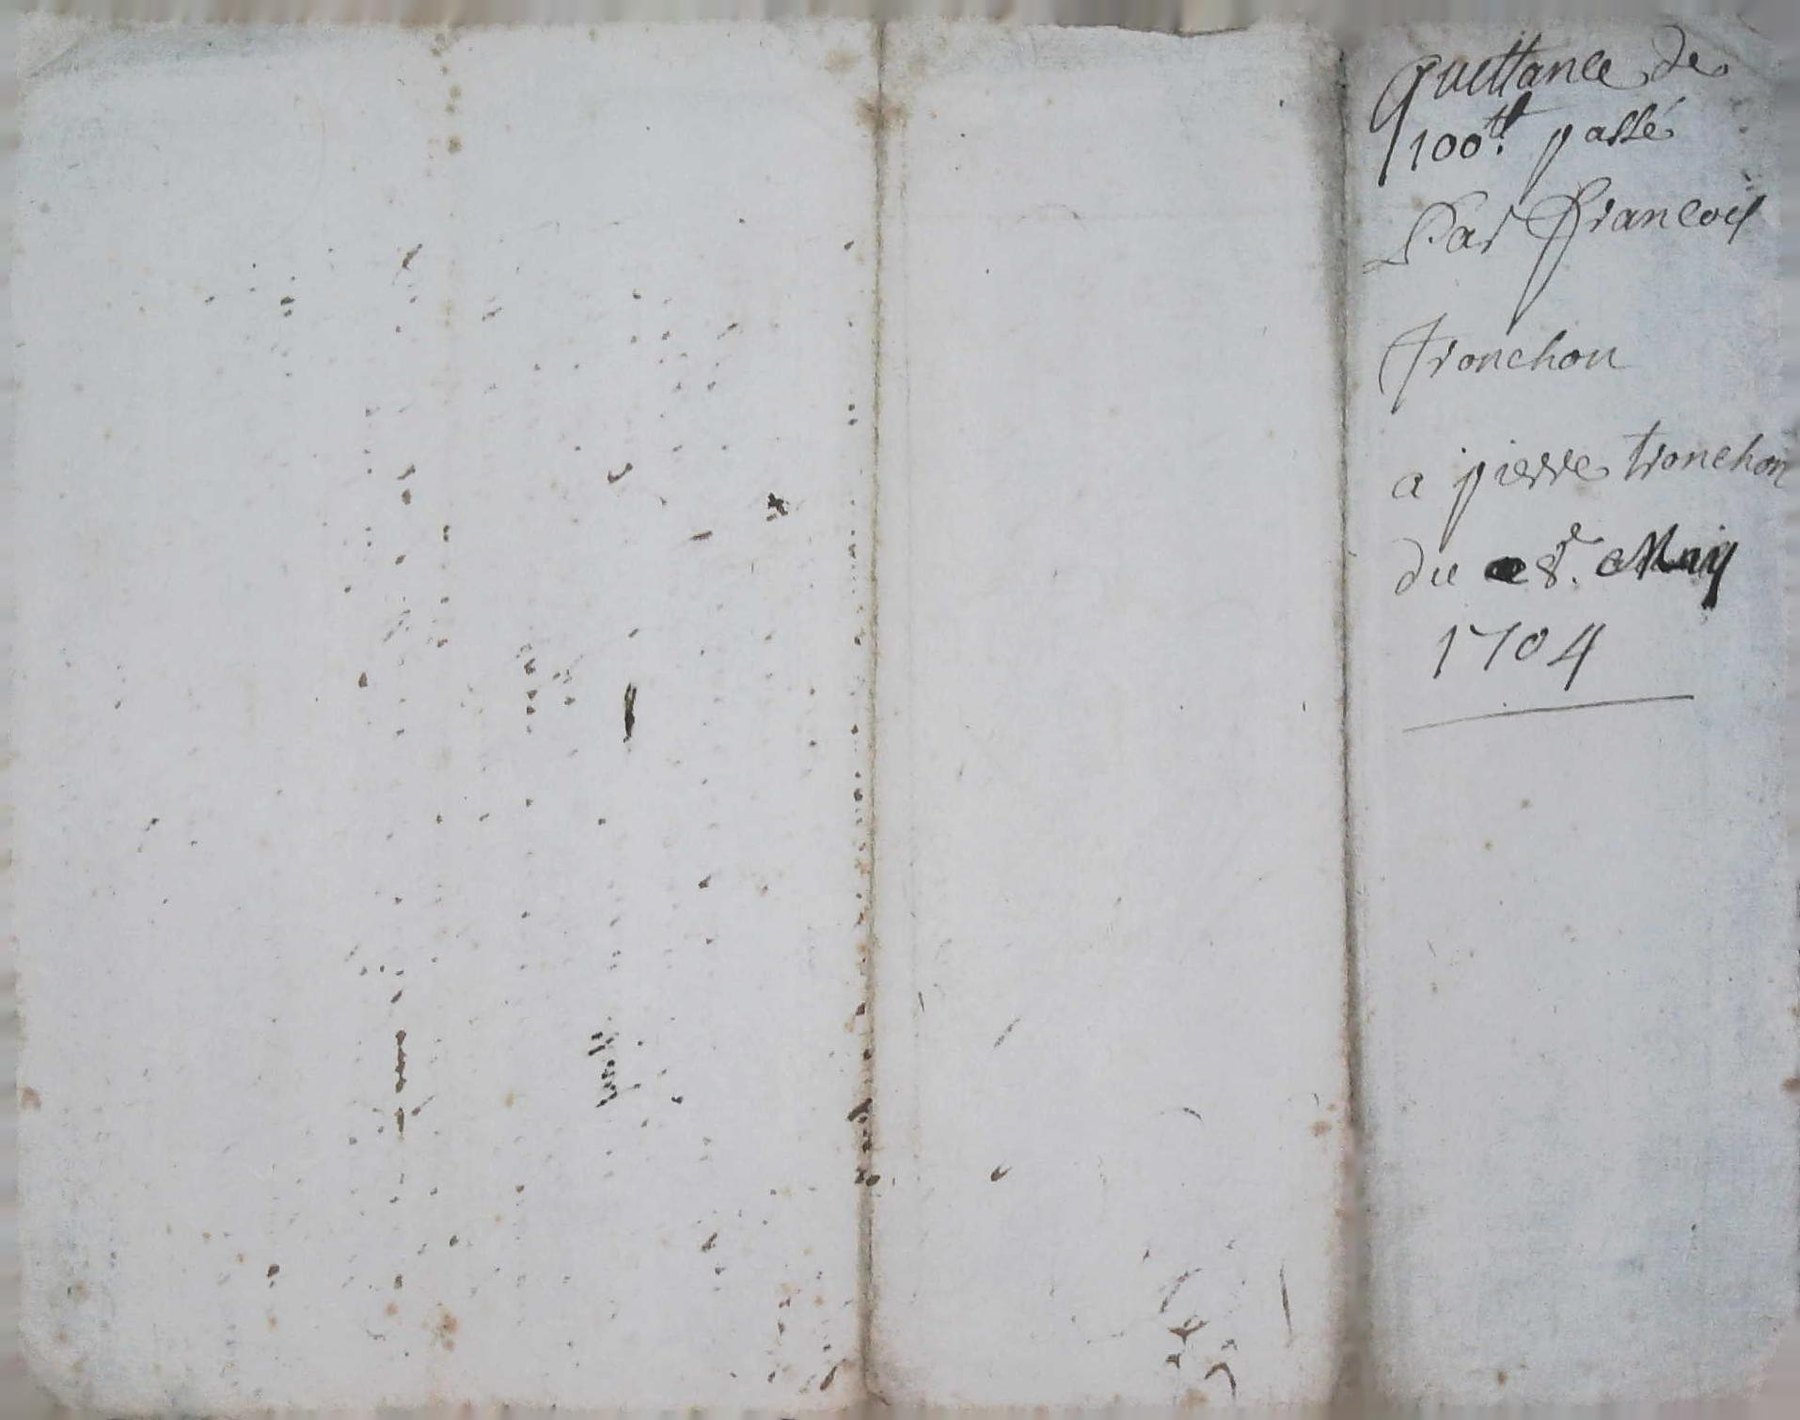 quittance de
100tt. passé
Par francois
tronchon
a pierre tronchon
du 8e. May
1704